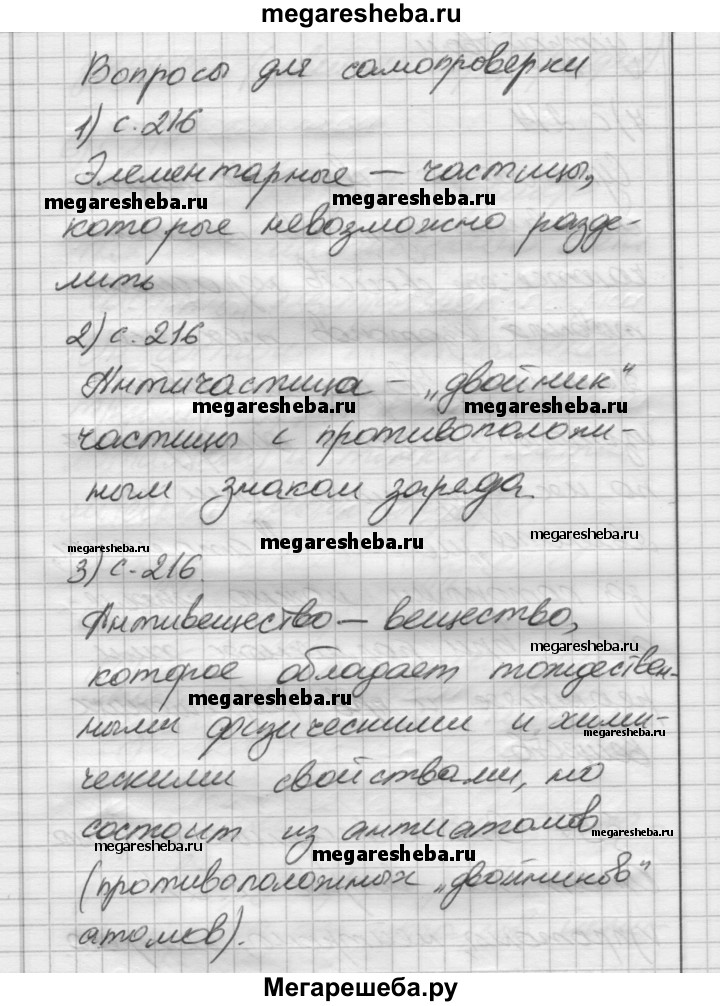 megaresheba.ru
Вопросы для самопроверки
1) с. 216
Элементарные – частицы,
megaresheba.ru megaresheba.ru
которые невозможно разде-
лить
2) с. 216
Античастица – „двойник“
megaresheba.ru megaresheba.ru
частицы с противополож-
ным знаком заряда.
megaresheba.ru
megaresheba.ru
megaresheba.ru
3) с. 216.
Антивещество – вещество,
megaresheba.ru
которое обладает тождествен-
megaresheba.ru
ными физическими и хими-
megaresheba.ru
ческими свойствами, но
состоит из антиатомов
megaresheba.ru
megaresheba.ru
megaresheba.ru
(противоположных „двойников“
атомов).
Мегарешеба.ру